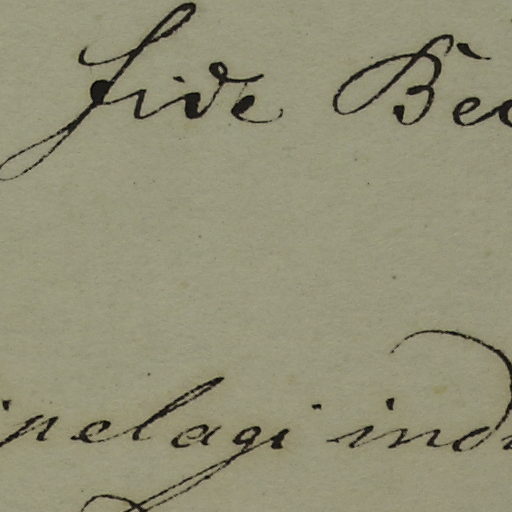 fide Bec
ipelagi ind